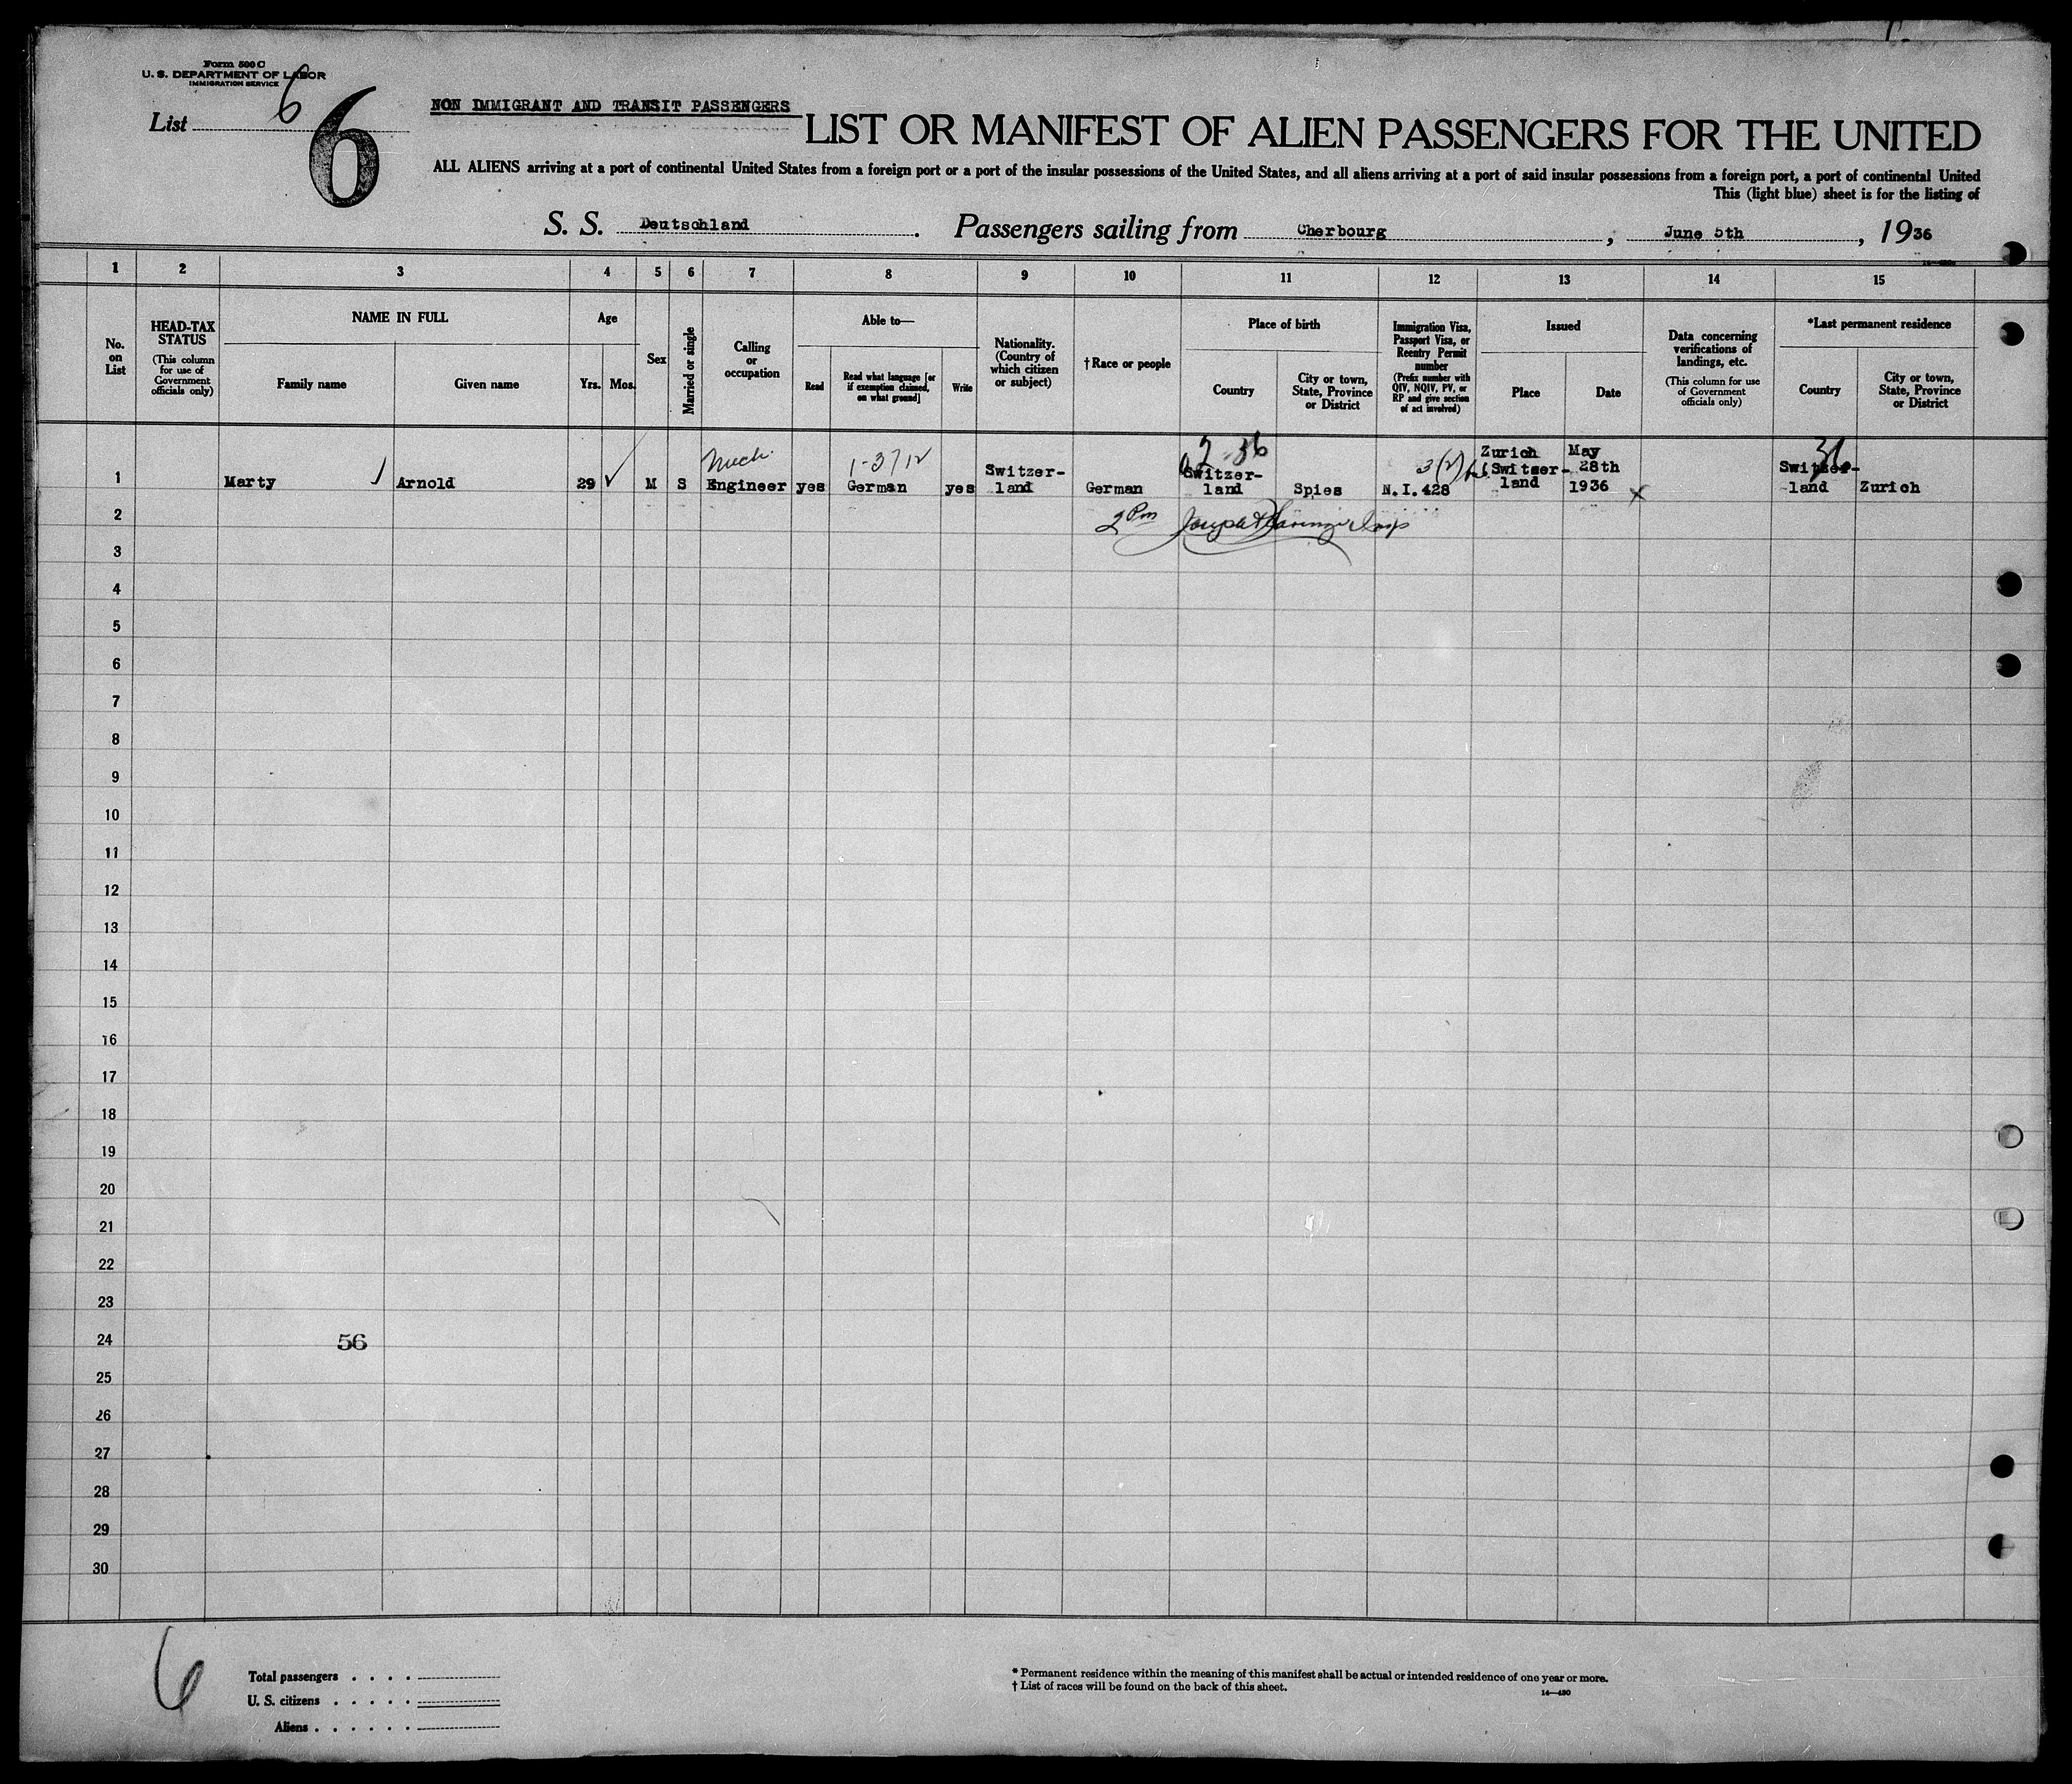 Form 500 C
U. S. DEPARTMENT OF LABOR
IMMIGRATION SERVICE
List 6
6
NON IMMIGRANT AND TRANSIT PASSENGERS
LIST OR MANIFEST OF ALIEN PASSENGERS FOR THE UNITED
ALL ALIENS arriving at a port of continental United States from a foreign port or a port of the insular possessions of the United States, and all aliens arriving at a port of said insular possessions from a foreign port, a port of continental United
This (light blue) sheet is for the listing of
S. S. Deutschland. Passengers sailing from Cherbourg, June 5th, 1936
1 2 3 4 5 6 7 8 9 10 11 12 13 14 15
No. on List
HEAD-TAX STATUS
(This column for use of Government officials only)
NAME IN FULL
Family name
Given name
Age
Yrs.
Mos.
Sex
Married or single
Calling or occupation
Able to—
Read
Read what language [or if exemption claimed, on what ground]
Write
Nationality. (Country of which citizen or subject)
†Race or people
Place of birth
Country
City or town, State, Province or District
Immigration Visa, Passport Visa, or Reentry Permit number
(Prefix number with QIV, NQIV, PV, or RP and give section of act involved)
Issued
Place
Date
Data concerning verifications of landings, etc.
(This column for use of Government officials only)
*Last permanent residence
Country
City or town, State, Province or District
1 Marty Arnold 29 M S Mech. Engineer yes German yes Switzer-land German Switzer-land Spies 3(2) N.I.428 Zurich Switzer-land May 28th 1936 x Switzer-land Zurich
1-3712
2-36
36
2
2 Pm Joseph
3
4
5
6
7
8
9
10
11
12
13
14
15
16
17
18
19
20
21
22
23
24 56
25
26
27
28
29
30
6
Total passengers . . . .
U. S. citizens . . . . .
Aliens . . . . . .
* Permanent residence within the meaning of this manifest shall be actual or intended residence of one year or more.
† List of races will be found on the back of this sheet.
14—430